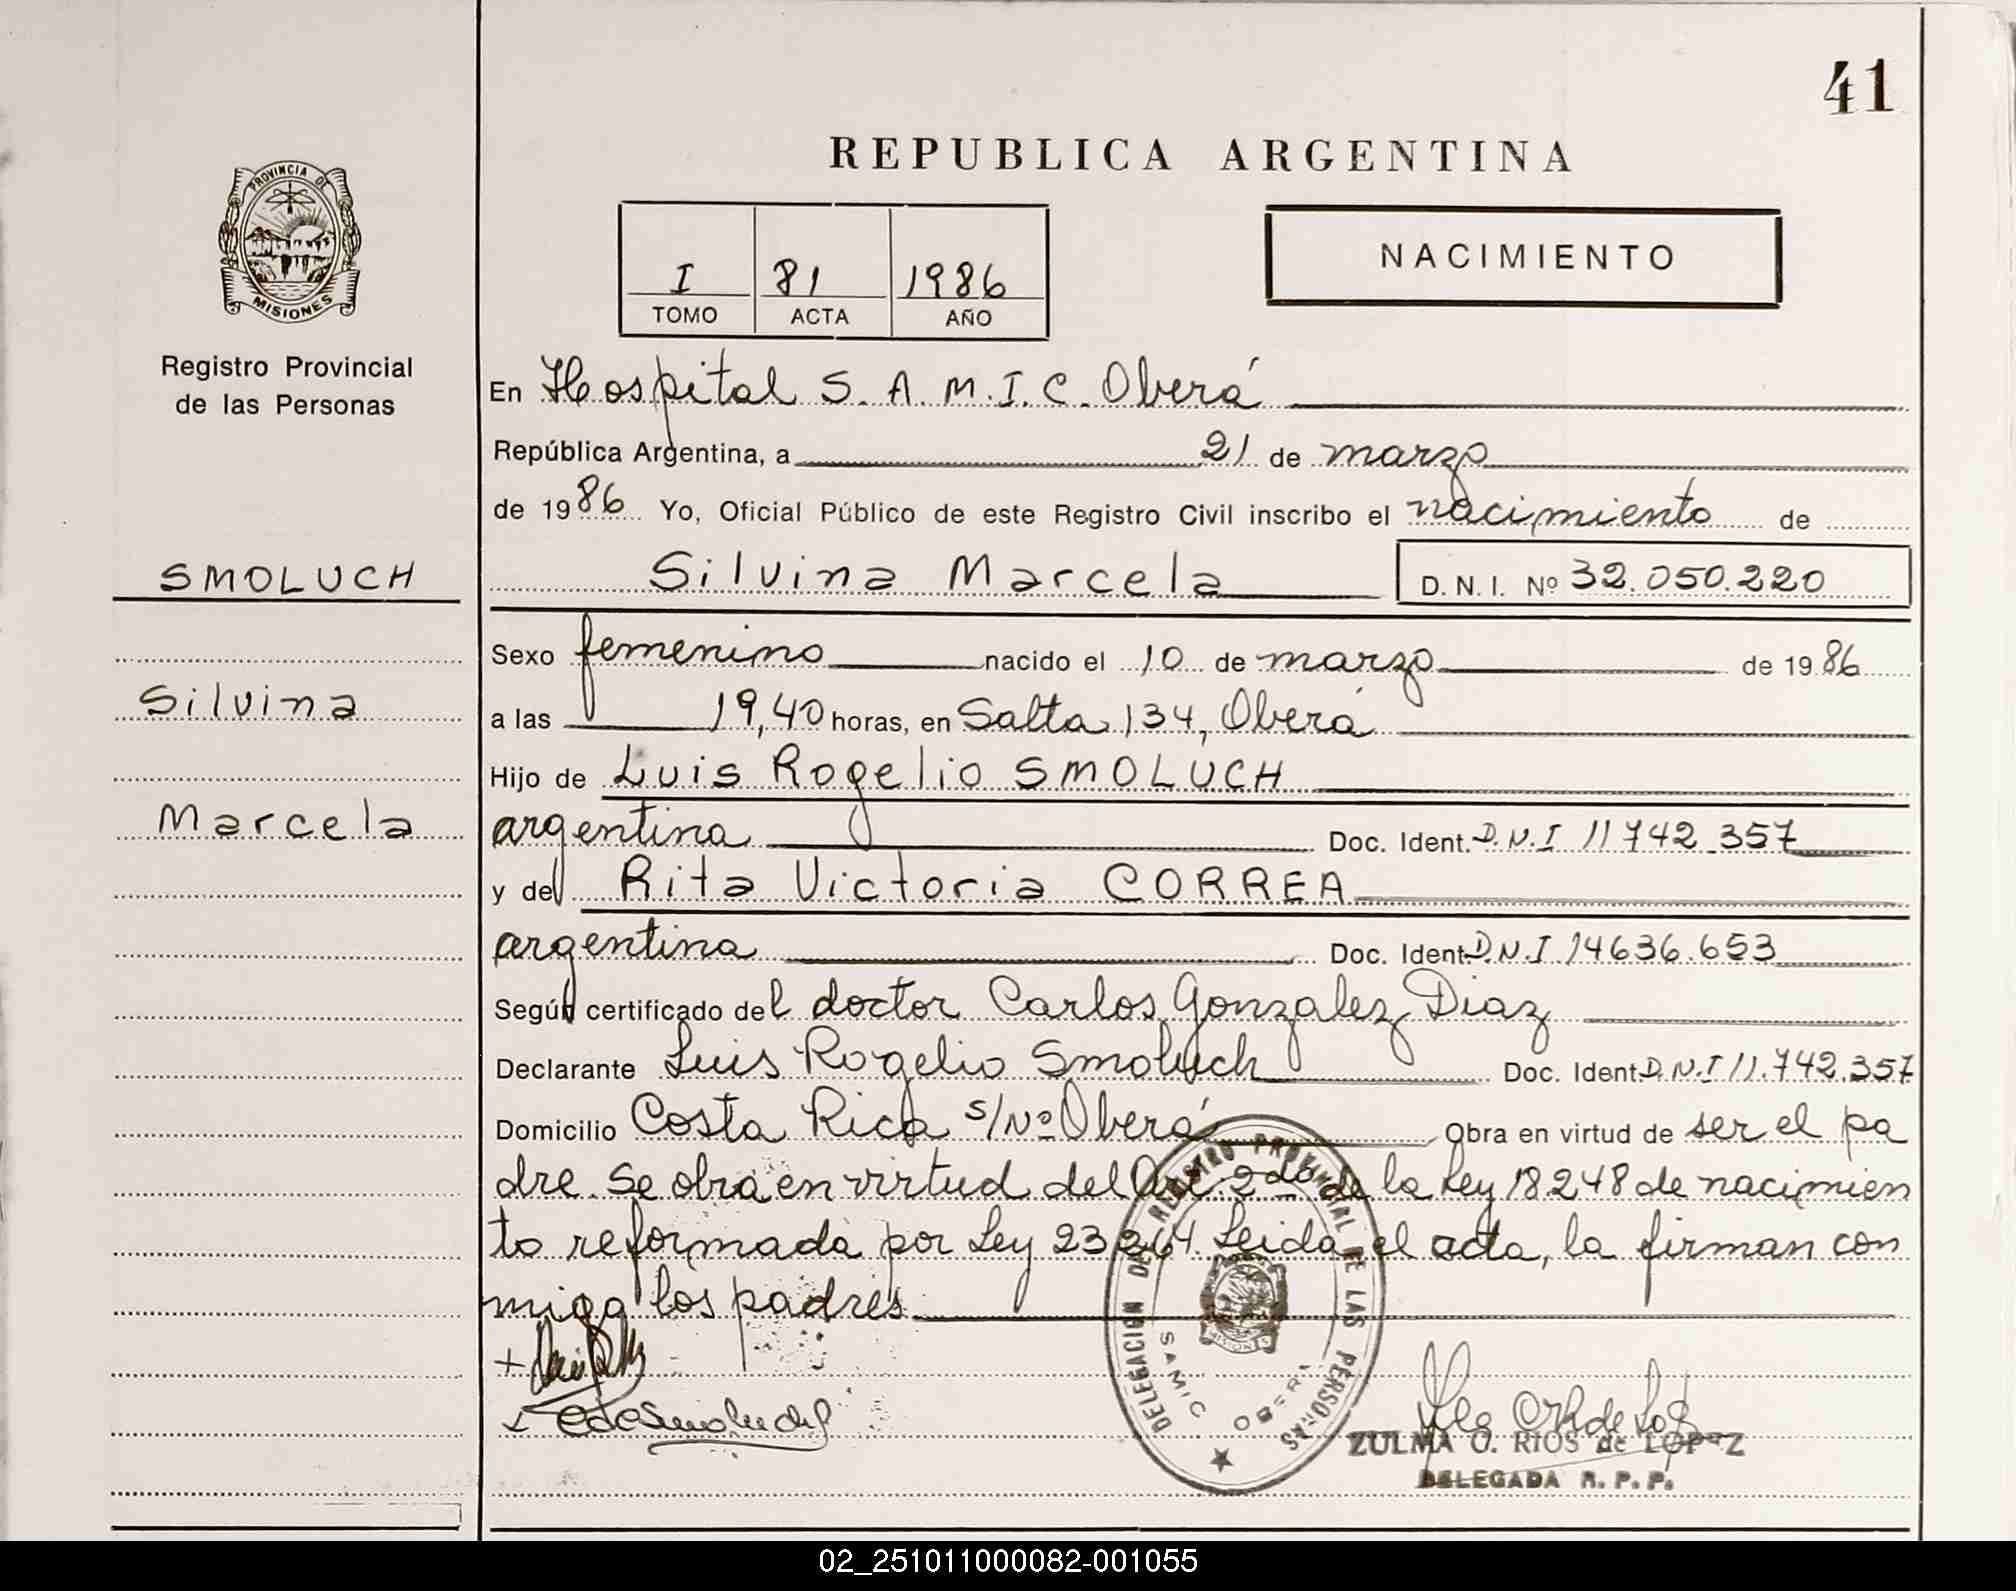 41
REPUBLICA ARGENTINA
PROVINCIA DE
MISIONES
Registro Provincial
de las Personas
I 81 1986
TOMO ACTA AÑO
NACIMIENTO
En Hospital S.A.M.I.C. Oberá
República Argentina, a 21 de marzo
de 1986 Yo, Oficial Público de este Registro Civil inscribo el nacimiento de
SMOLUCH
Silvina
Marcela
Silvina Marcela D.N.I. Nº 32.050.220
Sexo femenino nacido el 10 de marzo de 1986
a las 19,40 horas, en Salta 134, Oberá
Hijo de Luis Rogelio SMOLUCH
argentina Doc. Ident. D.N.I 11742.357
y de Rita Victoria CORREA
argentina Doc. Ident. D.N.I 14636.653
Según certificado del doctor Carlos Gonzalez Diaz
Declarante Luis Rogelio Smoluch Doc. Ident. D.N.I 11.742.357
Domicilio Costa Rica s/Nº Oberá Obra en virtud de ser el pa
dre. Se obra en virtud del Art. 2do de la Ley 18248 de nacimien
to reformada por Ley 23264. Leida el acta, la firman con
migo los padres
DELEGACION DEL REGISTRO PROVINCIAL DE LAS PERSONAS
SAMIC OBERA
ZULMA O. RIOS de LOPEZ
DELEGADA R. P. P.
02_251011000082-001055